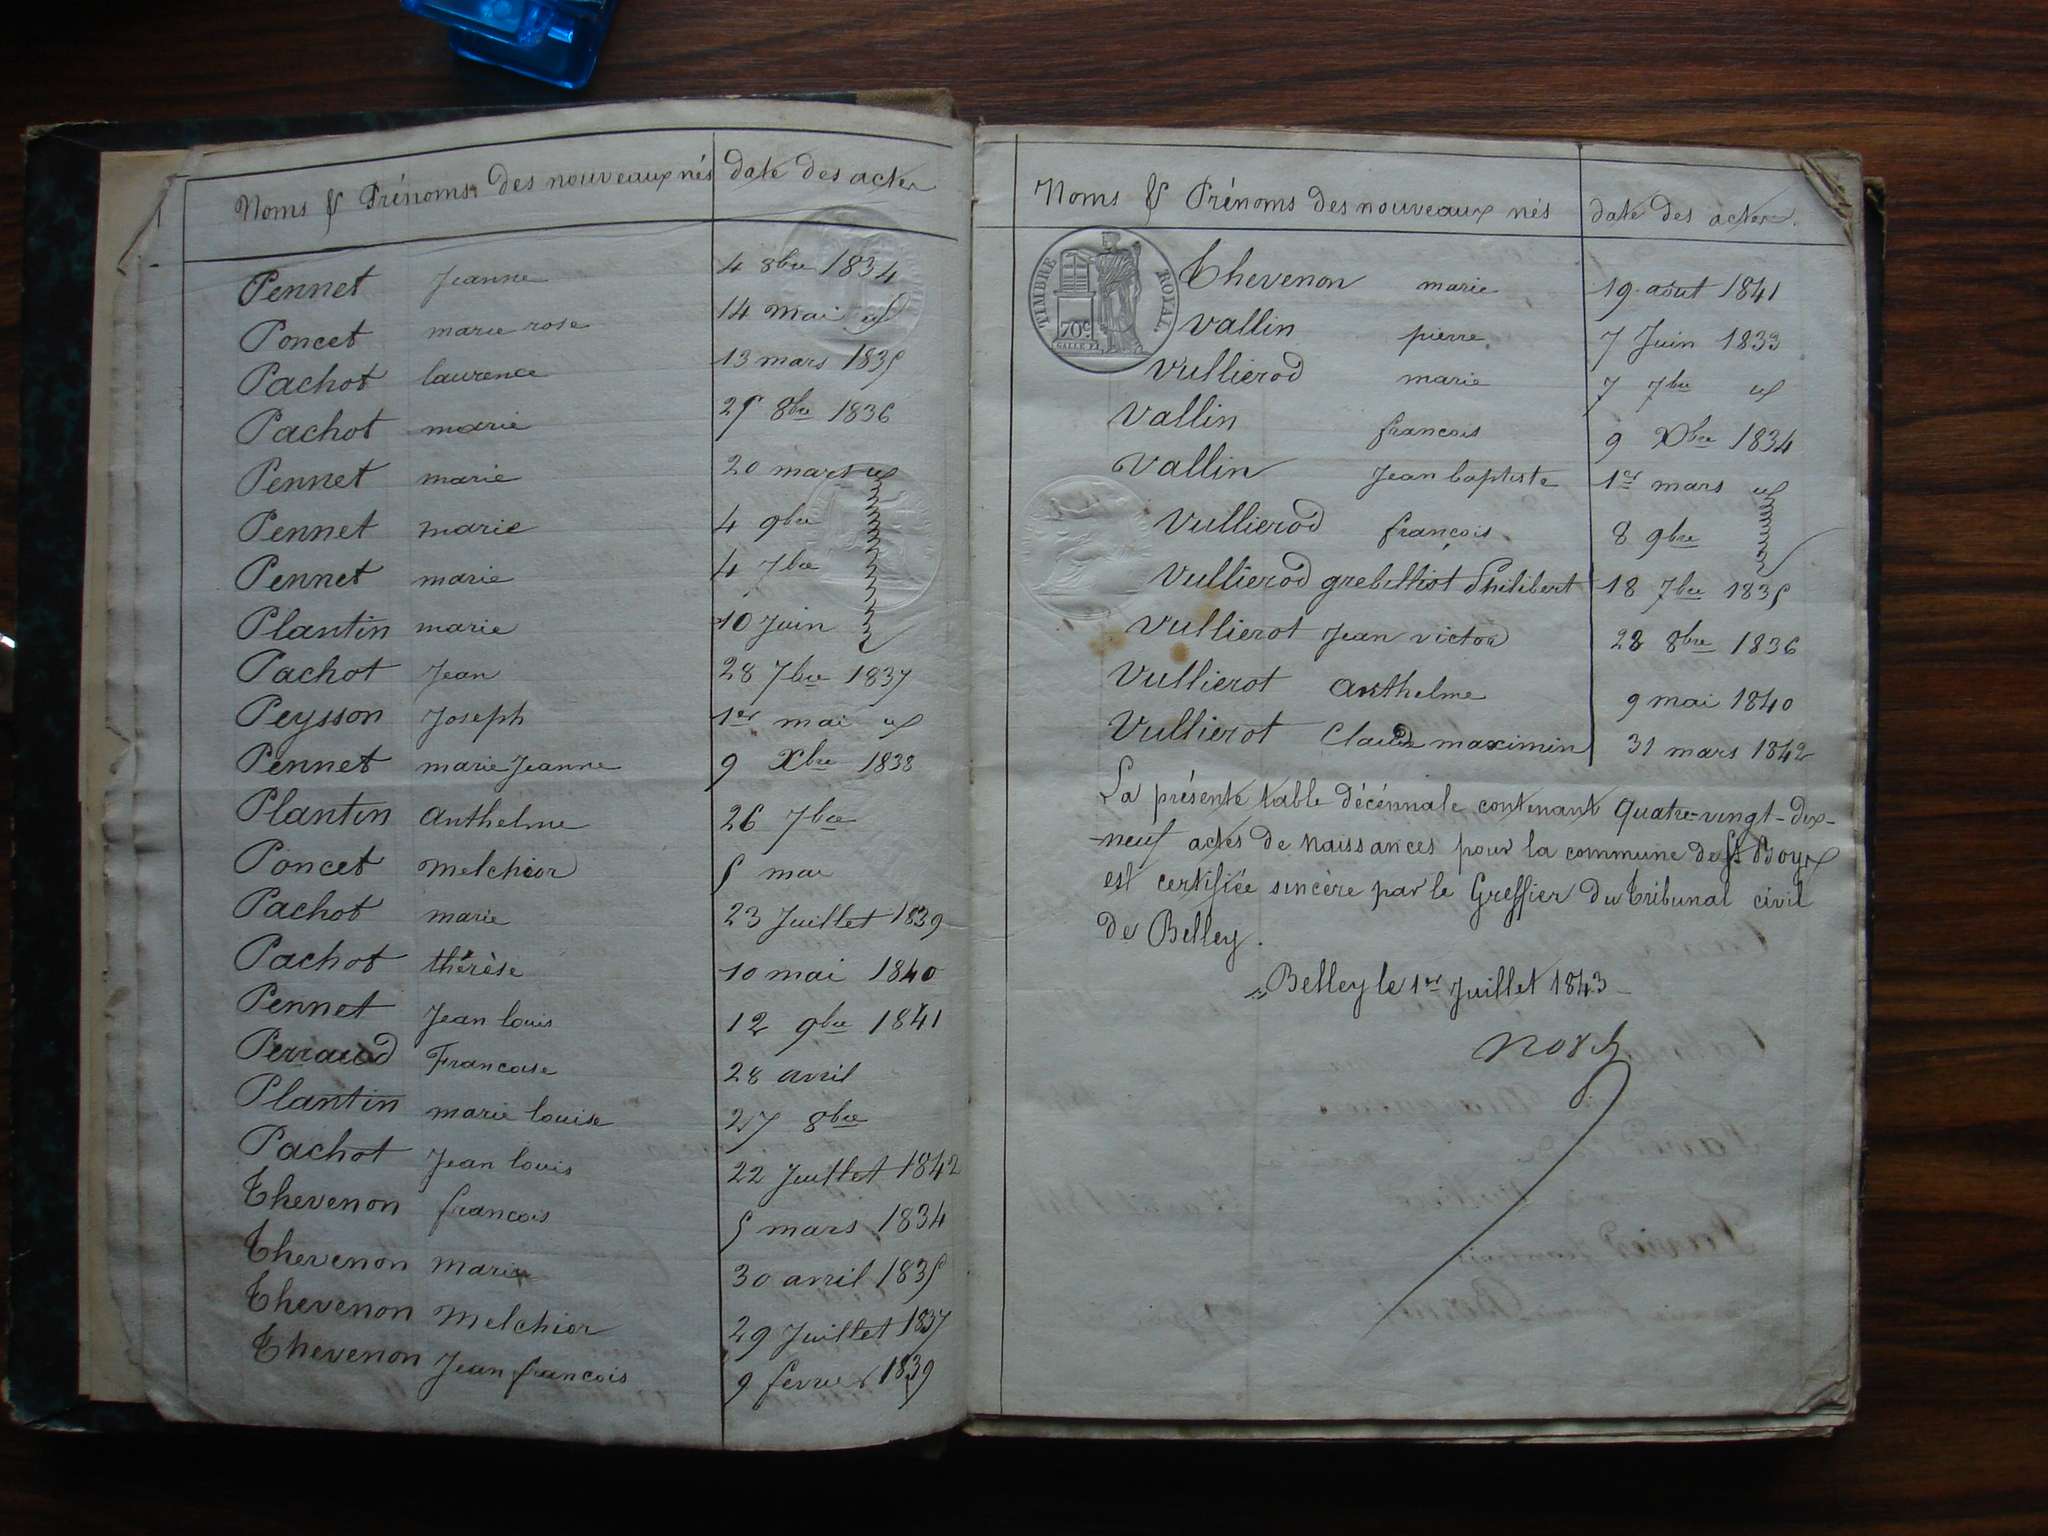 Noms & Prénoms des nouveaux nés date des actes
Pennet Jeanne 4 8bre 1834
Poncet marie rose 14 mai id
Pachot laurence 13 mars 1835
Pachot marie 25 8bre 1836
Pennet marie 20 mars id
Pennet marie 4 9bre
Pennet marie 4 7bre
Plantin marie 10 Juin
Pachot Jean 28 7bre 1837
Peysson Joseph 1er mai id
Pennet marie Jeanne 9 Xbre 1838
Plantin Anthelme 26 7bre
Poncet Melchior 5 mai
Pachot marie 23 Juillet 1839
Pachot thérèse 10 mai 1840
Pennet Jean louis 12 9bre 1841
Perraud Francoise 28 avril
Plantin marie louise 27 8bre
Pachot Jean louis 22 Juillet 1842
Thevenon francois 5 mars 1834
Thevenon Marie 30 avril 1835
Thevenon Melchior 29 Juillet 1837
Thevenon Jean francois 9 fevrier 1839
Noms & Prénoms des nouveaux nés date des actes.
TIMBRE ROYAL
70c
Thevenon marie 19 août 1841
Vallin pierre 7 Juin 1833
Vullierod marie 7 7bre id
Vallin francois 9 Xbre 1834
Vallin Jean baptiste 1er mars id
Vullierod françois 8 9bre
Vullierod grebilliot Philibert 18 7bre 1835
Vullierot Jean victor 28 8bre 1836
Vullierot Anthelme 9 mai 1840
Vullierot Claude maximin 31 mars 1842
La présente table décennale contenant quatre-vingt-dix-
neuf actes de naissances pour la commune de St Boys
est certifiée sincère par le Greffier du tribunal civil
de Belley.
Belley le 1er Juillet 1843